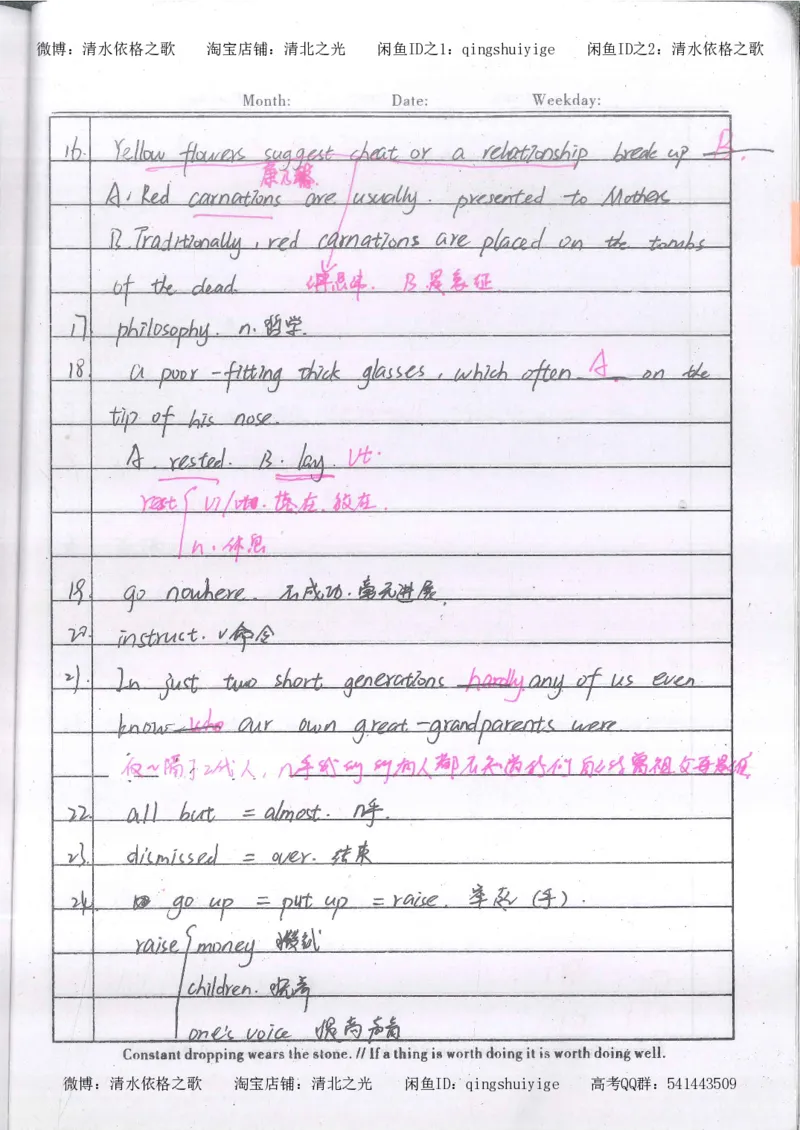 微博：清水依格之歌 淘宝店铺：清北之光 闲鱼ID之1：qingshuiyige 闲鱼ID之2：清水依格之歌
Month: Date: Weekday:
16. Yellow flowers suggest cheat or a relationship break up B.
康乃馨.
A. Red carnations are usually. presented to Mothers
B. Traditionally, red carnations are placed on the tombs
of the dead. B是象征
17. philosophy. n. 哲学.
18. a poor-fitting thick glasses, which often A. on the
tip of his nose.
A. rested. B. lay. vt.
rest vi/vt. 放在.
n. 休息
19. go nowhere. 不成功. 毫无进展.
20. instruct. v命令
21. In just two short generations hardly any of us even
know who our own great-grandparents were
22. all but = almost. 几乎.
23. dismissed = over. 结束
24. go up = put up = raise. 举起 (手).
raise money
children. 抚养
one's voice 提高声音
Constant dropping wears the stone. // If a thing is worth doing it is worth doing well.
微博：清水依格之歌 淘宝店铺：清北之光 闲鱼ID：qingshuiyige 高考QQ群：541443509